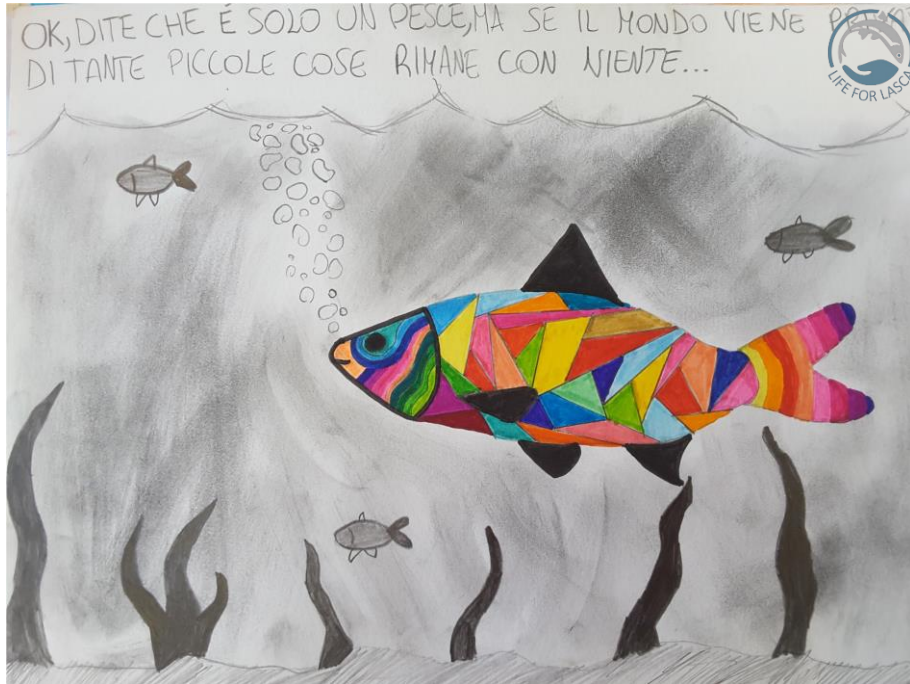 OK, DITE CHE É SOLO UN PESCE, MA SE IL MONDO VIENE
DI TANTE PICCOLE COSE RIMANE CON NIENTE...
LIFE FOR LASCA